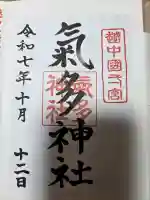 越中國一宮
氣多神社
氣多神社
令和七年十月
十二日